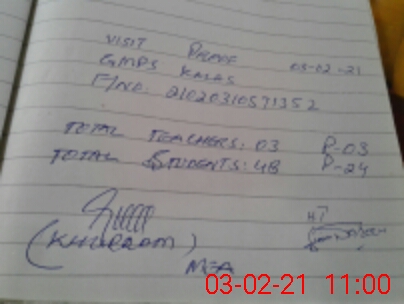 VISIT PROOF
GMPS KALAS 03-02-21
F/NO. 21020310571352
TOTAL TEACHERS: 03 P-03
TOTAL STUDENTS: 48 P-24
H.T
(KHURRAM)
MEA
03-02-21 11:00